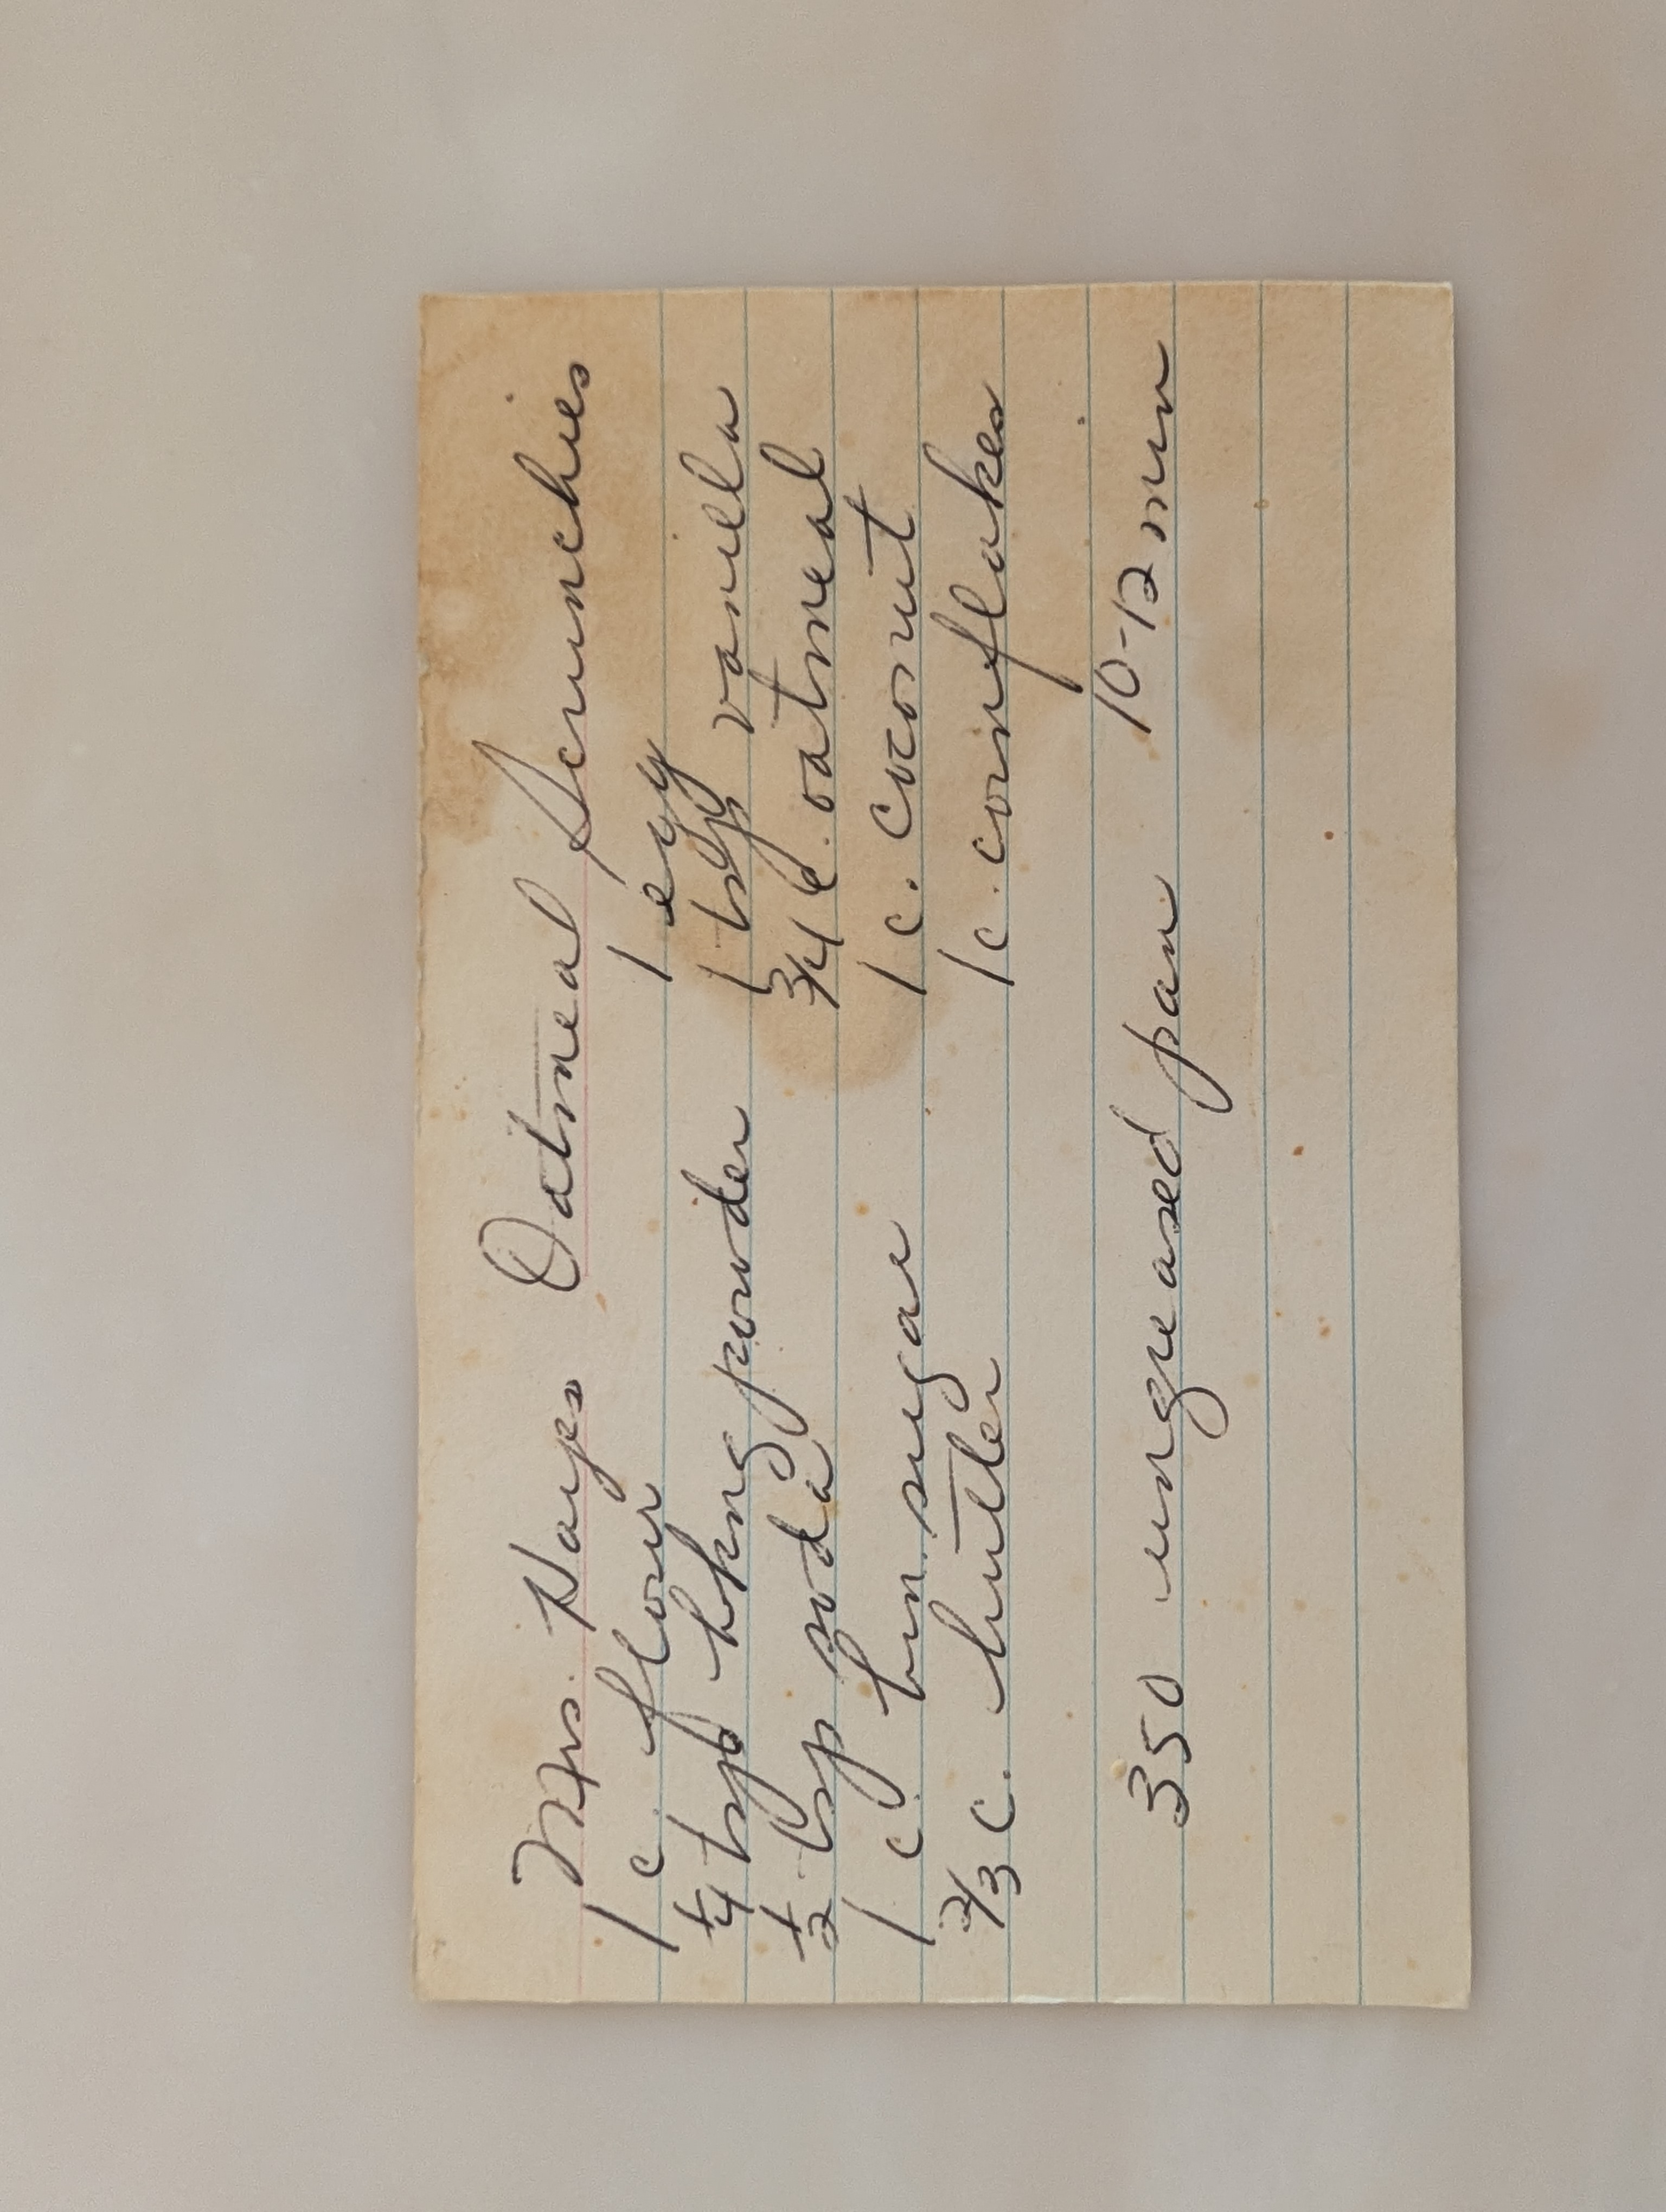 Mrs. Hays Oatmeal Scrunchies
1 c flour 1 egg
1/4 tsp bkng powder 1 tsp vanilla
1/2 tsp soda 3/4 c. oatmeal
1 c. brn. sugar 1 c. coconut
2/3 c. butter 1 c. cornflakes
350 ungreased pan 10-12 min